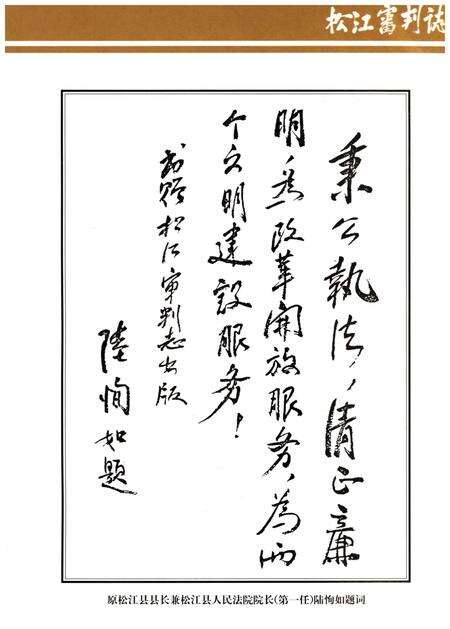 松江審判誌
秉公執法，清正廉
明，為改革開放服务，為两
个文明建設服务！
敬贺松江审判志出版
陸恂如题
原松江县县长兼松江县人民法院院长(第一任)陆恂如题词